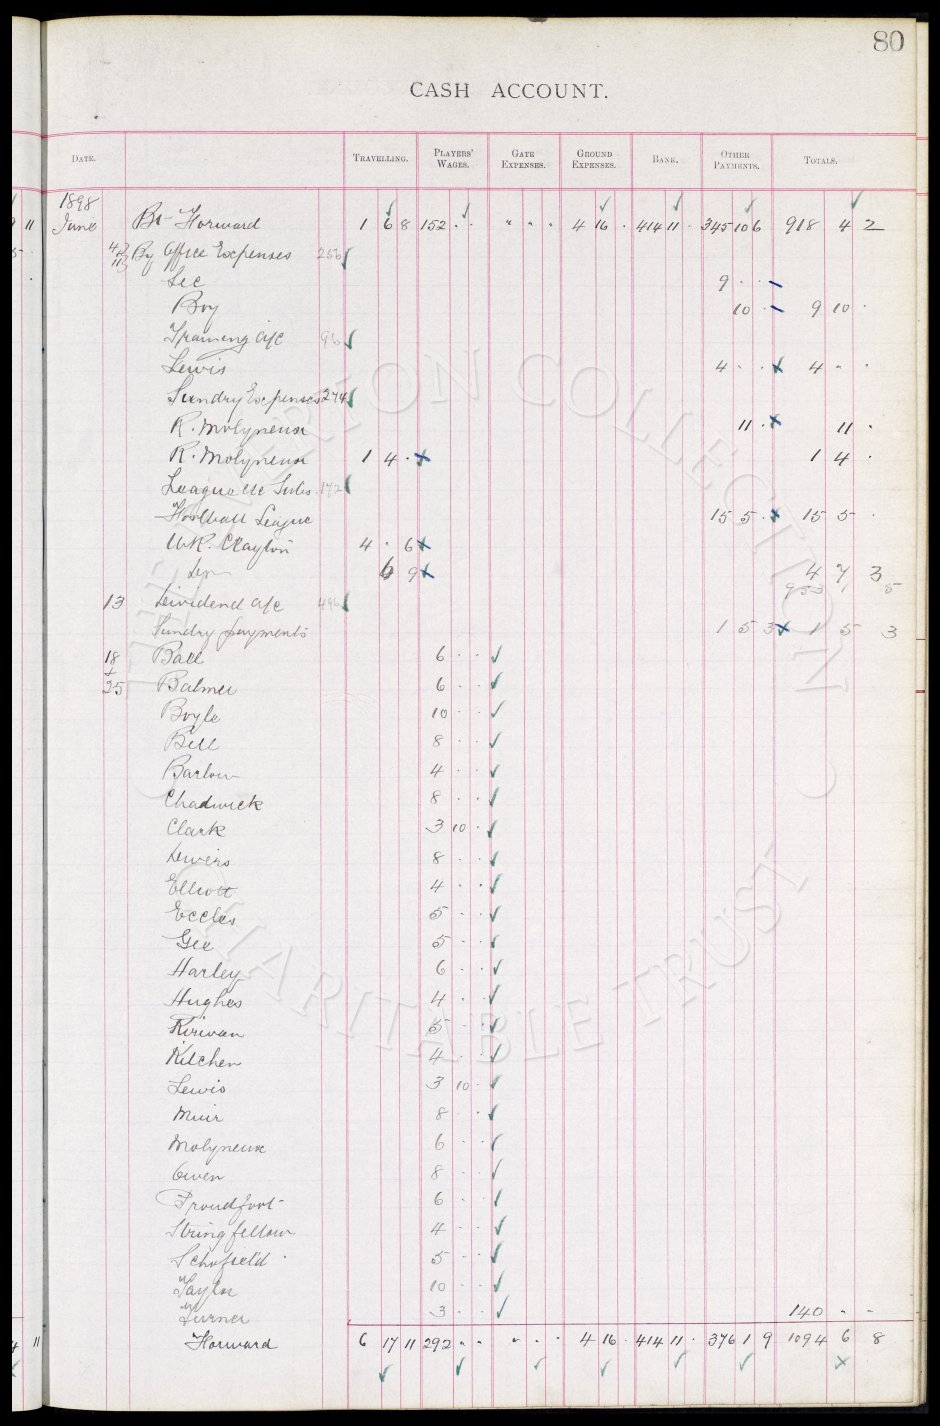 80
CASH ACCOUNT.
DATE. TRAVELLING. PLAYERS' WAGES. GATE EXPENSES. GROUND EXPENSES. BANK. OTHER PAYMENTS. TOTALS.
1898
11 June Bt Forward 1 6 8 152 . . " " " 4 16 . 414 11 . 345 10 6 918 4 2
4 & 11 By Office Expenses 256
Sec 9 . .
Boy 10 . 9 10 .
Training a/c 96
Lewis 4 . . 4 " .
Sundry Expenses 274
R. Molyneux 11 . 11 .
R. Molyneux 1 4 . 1 4 .
League &c Subs. 142
Football League 15 5 . 15 5 .
W.R. Clayton 4 . 6
6 9 4 7 3
953 1 5
13 Dividend a/c 496
Sundry payments 1 5 3 1 5 3
18 Ball 6 . .
& 25 Balmer 6 . .
Boyle 10 . .
Bell 8 . .
Barlow 4 . .
Chadwick 8 . .
Clark 3 10 .
Divers 8 . .
Elliott 4 . .
Eccles 5 . .
Gee 5 . .
Harley 6 . .
Hughes 4 . .
Kirwan 5 . .
Kitchen 4 . .
Lewis 3 10 .
Muir 8 . .
Molyneux 6 . .
Owen 8 . .
Proudfoot 6 . .
Stringfellow 4 . .
Schofield 5 . .
Taylor 10 . .
Turner 3 . . 140 " "
11 Forward 6 17 11 292 " " " . . 4 16 . 414 11 . 376 1 9 1094 6 8
THE EVERTON COLLECTION
CHARITABLE TRUST